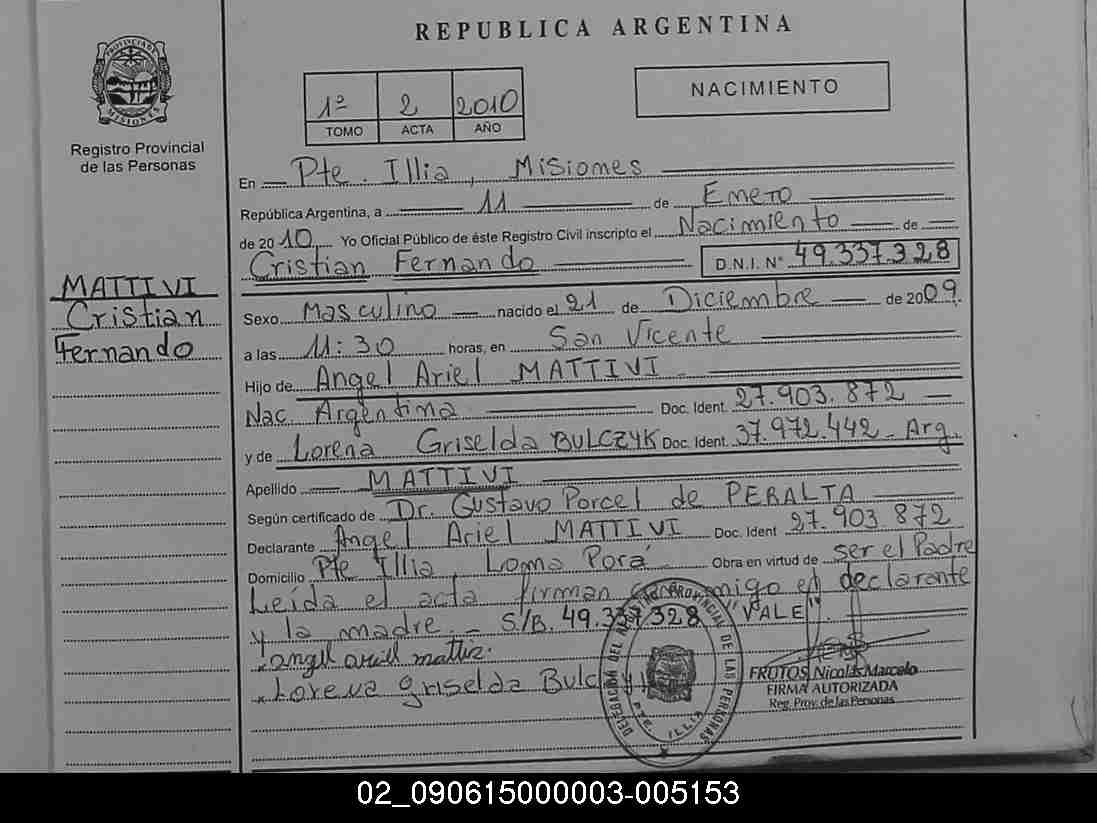 REPUBLICA ARGENTINA
PROVINCIA DE MISIONES
Registro Provincial
de las Personas
1º 2 2010
TOMO ACTA AÑO
NACIMIENTO
En Pte. Illia, Misiones
República Argentina, a 11 de Enero
de 2010 Yo Oficial Público de éste Registro Civil inscripto el Nacimiento de
Cristian Fernando D.N.I. Nº 49.337.328
MATTIVI
Cristian
Fernando
Sexo Masculino nacido el 21 de Diciembre de 2009.
a las 11:30 horas, en San Vicente
Hijo de Angel Ariel MATTIVI
Nac. Argentina Doc. Ident. 27.903.872
y de Lorena Griselda BULCZYK Doc. Ident. 37.972.442 - Arg.
Apellido MATTIVI
Según certificado de Dr. Gustavo Porcel de PERALTA
Declarante Angel Ariel MATTIVI Doc. Ident 27.903.872
Domicilio Pte Illia, Loma Porá Obra en virtud de ser el Padre
Leída el acta firman conmigo el declarante
y la madre. - S/B. 49.337.328 "VALE".
x angel ariel mattiv.
x Lorena griselda Bulczyk
DELEGACION DEL REGISTRO PROVINCIAL DE LAS PERSONAS
PTE. ILLIA
FRUTOS Nicolás Marcelo
FIRMA AUTORIZADA
Reg. Prov. de las Personas
02_090615000003-005153